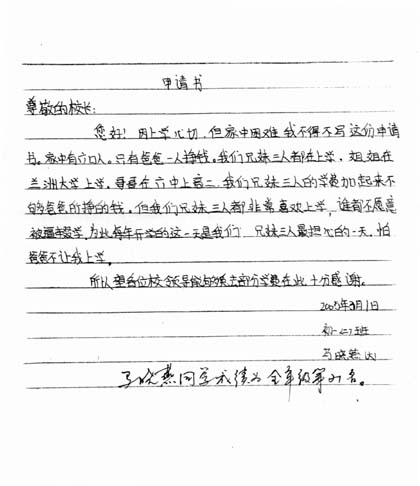 申请书
尊敬的校长:
您好! 因上学心切,但家中困难我不得不写这份申请
书。家中有六口人。只有爸爸一人挣钱。我们兄妹三人都在上学,姐姐在
兰洲大学上学,哥哥在六中上高二,我们兄妹三人的学费加起来不
够爸爸所挣的钱。但我们兄妹三人都非常喜欢上学,谁都不愿意
被逼辍学,为此每年开学的这一天是我们 兄妹三人最担心的一天,怕
爸爸不让我上学。
所以望各位校领导能够免去部分学费在此十分感谢。
月1日
初一 班
马晓燕
马晓燕同学成绩为全年级第 名。